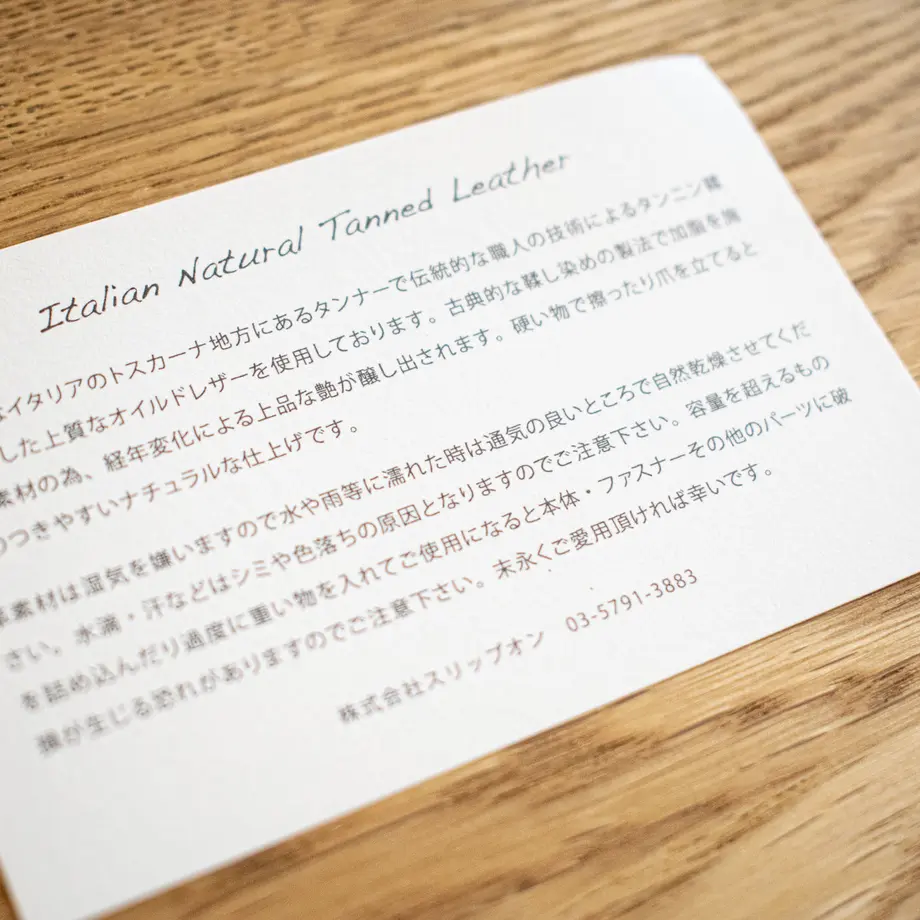 Italian Natural Tanned Leather
はイタリアのトスカーナ地方にあるタンナーで伝統的な職人の技術によるタンニン鞣
した上質なオイルドレザーを使用しております。古典的な鞣し染めの製法で加脂を施
素材の為、経年変化による上品な艶が醸し出されます。硬い物で擦ったり爪を立てると
つきやすいナチュラルな仕上げです。
革素材は湿気を嫌いますので水や雨等に濡れた時は通気の良いところで自然乾燥させてくだ
さい。水滴・汗などはシミや色落ちの原因となりますのでご注意下さい。容量を超えるもの
を詰め込んだり過度に重い物を入れてご使用になると本体・ファスナーその他のパーツに破
損が生じる恐れがありますのでご注意下さい。末永くご愛用頂ければ幸いです。
株式会社スリップオン 03-5791-3883